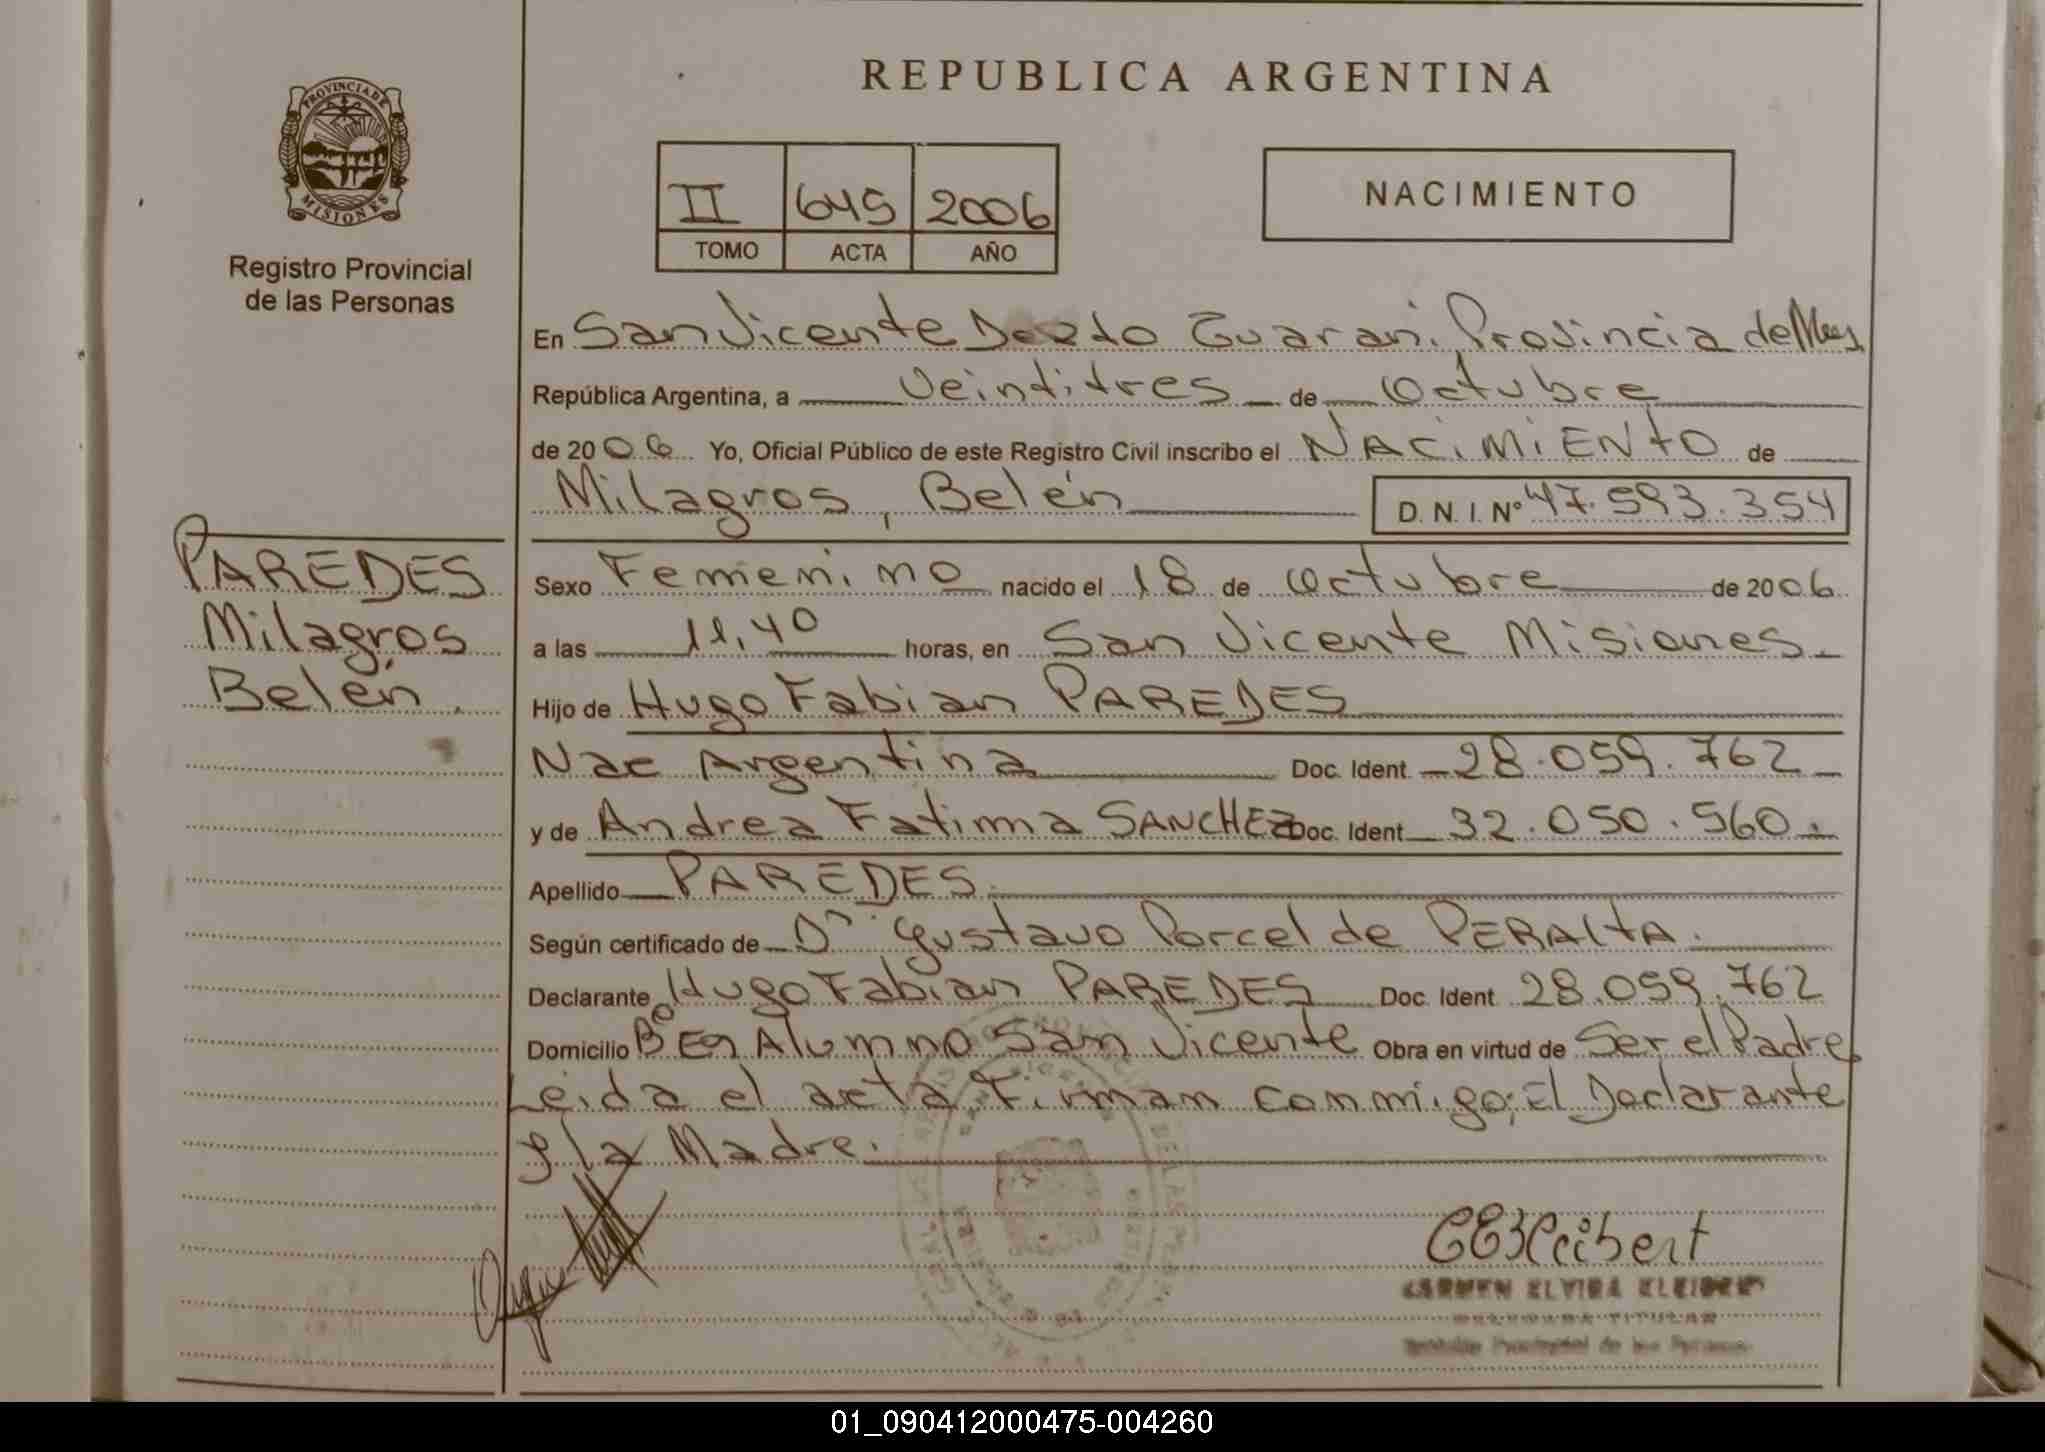 REPUBLICA ARGENTINA
PROVINCIA DE
MISIONES
Registro Provincial
de las Personas
II 645 2006
TOMO ACTA AÑO
NACIMIENTO
En San Vicente Dpto Guarani. Provincia de Mnes
República Argentina, a Veintitres de Octubre
de 2006 Yo, Oficial Público de este Registro Civil inscribo el NACIMIENTO de
Milagros, Belén D. N. I. Nº 47.593.354
PAREDES
Milagros
Belén.
Sexo Femenino nacido el 18 de Octubre de 2006
a las 11,40 horas, en San Vicente Misiones.
Hijo de Hugo Fabian PAREDES
Nac Argentina Doc. Ident. 28.059.762
y de Andrea Fatima SANCHEZ Doc. Ident 32.050.560.
Apellido PAREDES.
Según certificado de Dr Gustavo Porcel de PERALTA.
Declarante Hugo Fabian PAREDES Doc. Ident 28.059.762
Domicilio Bº Ex Alumno San Vicente Obra en virtud de Ser el Padre
Leida el acta Firman conmigo; El Declarante
y la Madre.
CEKleibert
CARMEN ELVIRA KLEIBERT
DELEGADA TITULAR
Registro Provincial de las Personas
01_090412000475-004260